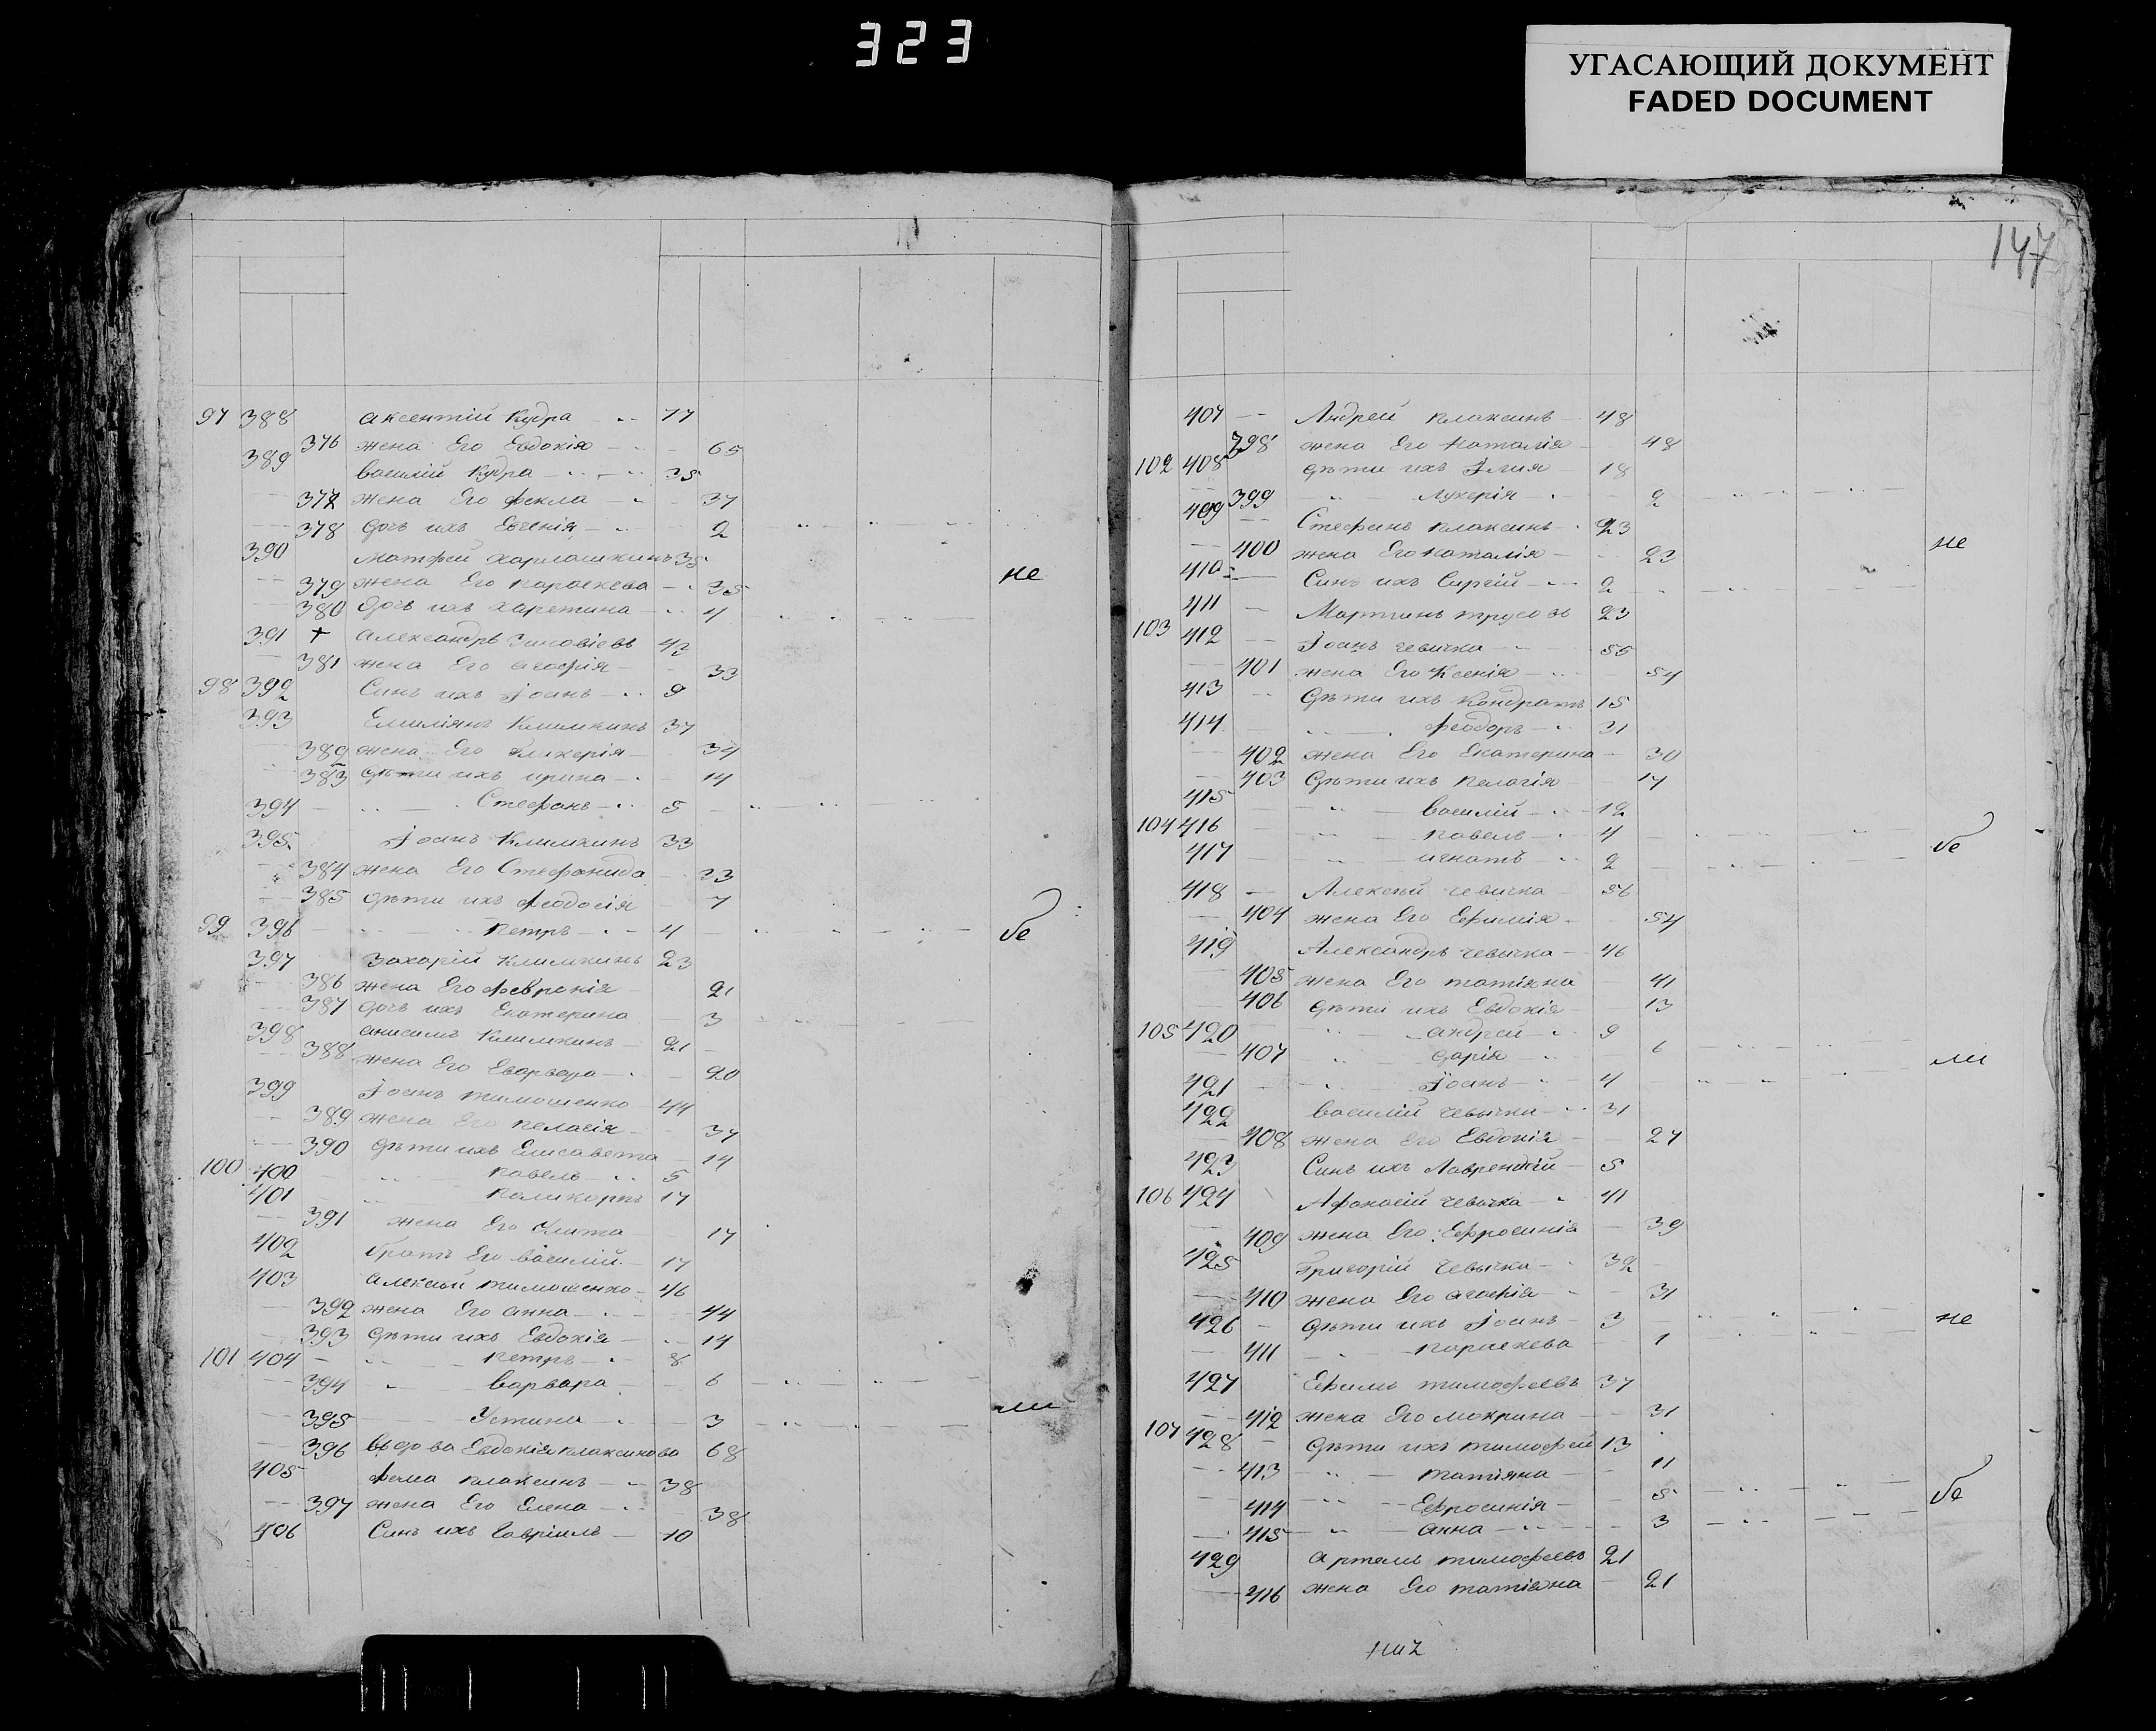 323
УГАСАЮЩИЙ ДОКУМЕНТ
FADED DOCUMENT
147
97 388 аксентий Кудра 77
376 жена Его Евдокія 65
389 василій Кудра 35
377 жена Его фекла 37
378 дочь ихъ Евгенія 2
390 матфей Харлашкинъ 35
379 жена Его параскева 35 не
380 дочь ихъ харетина 4
391 + александръ Зиновіевъ 43
381 жена Его агафія 33
98 392 Синъ ихъ Іоанъ 9
393 Емиліянъ Климкинъ 37
382 жена Его Гликерія 34
383 дѣти ихъ ирина 14
394 Стефанъ 5
395 Іоанъ Климкинъ 33
384 жена Его Стефанида 23
385 дѣти ихъ феодосія 7
99 396 петръ 4 бе
397 Захорій Климкинъ 23
386 жена Его февронія 21
387 дочь ихъ Екатерина 3
398 анисимъ Климкинъ 21
388 жена Его Еварвара 20
399 Іоанъ тимошенко 44
389 жена Его пелагія 37
390 дѣти ихъ Елисавета 14
100 400 павелъ 5
401 поликарпъ 17
391 жена Его Улита 17
402 братъ Его василій 17
403 алексѣй тимошенко 46
392 жена Его анна 44
393 дѣти ихъ Евдокія 14
101 404 петръ 8
394 варвара 6
395 Устина 3 ли
396 вьдова Евдокія плаксинова 68
405 фома плаксинъ 38
397 жена Его Елена 38
406 Синъ ихъ Гавріилъ 10
407 Андрей плаксинъ 48
398 жена Его наталія 48
102 408 дѣти ихъ Ілия 18
399 Лукерія 2
409 Стефанъ плаксинъ 23
400 жена Его наталія 23 не
410 Синъ ихъ Сиргій 2
411 Мартинъ трусовъ 23
103 412 Іоанъ чевычка 55
401 жена Его Ксенія 54
413 дѣти ихъ Кондратъ 15
414 феодоръ 31
402 жена Его Екатерина 30
403 дѣти ихъ пелагія 17
415 василій 12
104 416 павелъ 4
417 игнатъ 2 бе
418 Алексѣй чевычка 56
404 жена Его Ефимія 54
419 Александръ чевычка 46
405 жена Его татіяна 41
406 дѣти ихъ Евдокія 13
105 420 андрей 9
407 дарія 6
421 Іоанъ 4 ли
422 василій чевычка 31
408 жена Его Евдокія 27
423 Синъ ихъ Лаврентій 5
106 424 Афанасій чевычка 41
409 жена Его Ефросинія 39
425 Григорій чевычка 32
410 жена Его агафія 31
426 дѣти ихъ Іоанъ 3 не
411 параскева 1
427 Ефимъ тимофеевъ 37
412 жена Его мокрина 31
107 428 дѣти ихъ тимофей 13
413 татіяна 11
414 Ефросинія 5 бе
415 анна 3
429 артемъ тимофеевъ 21
416 жена Его татіяна 21